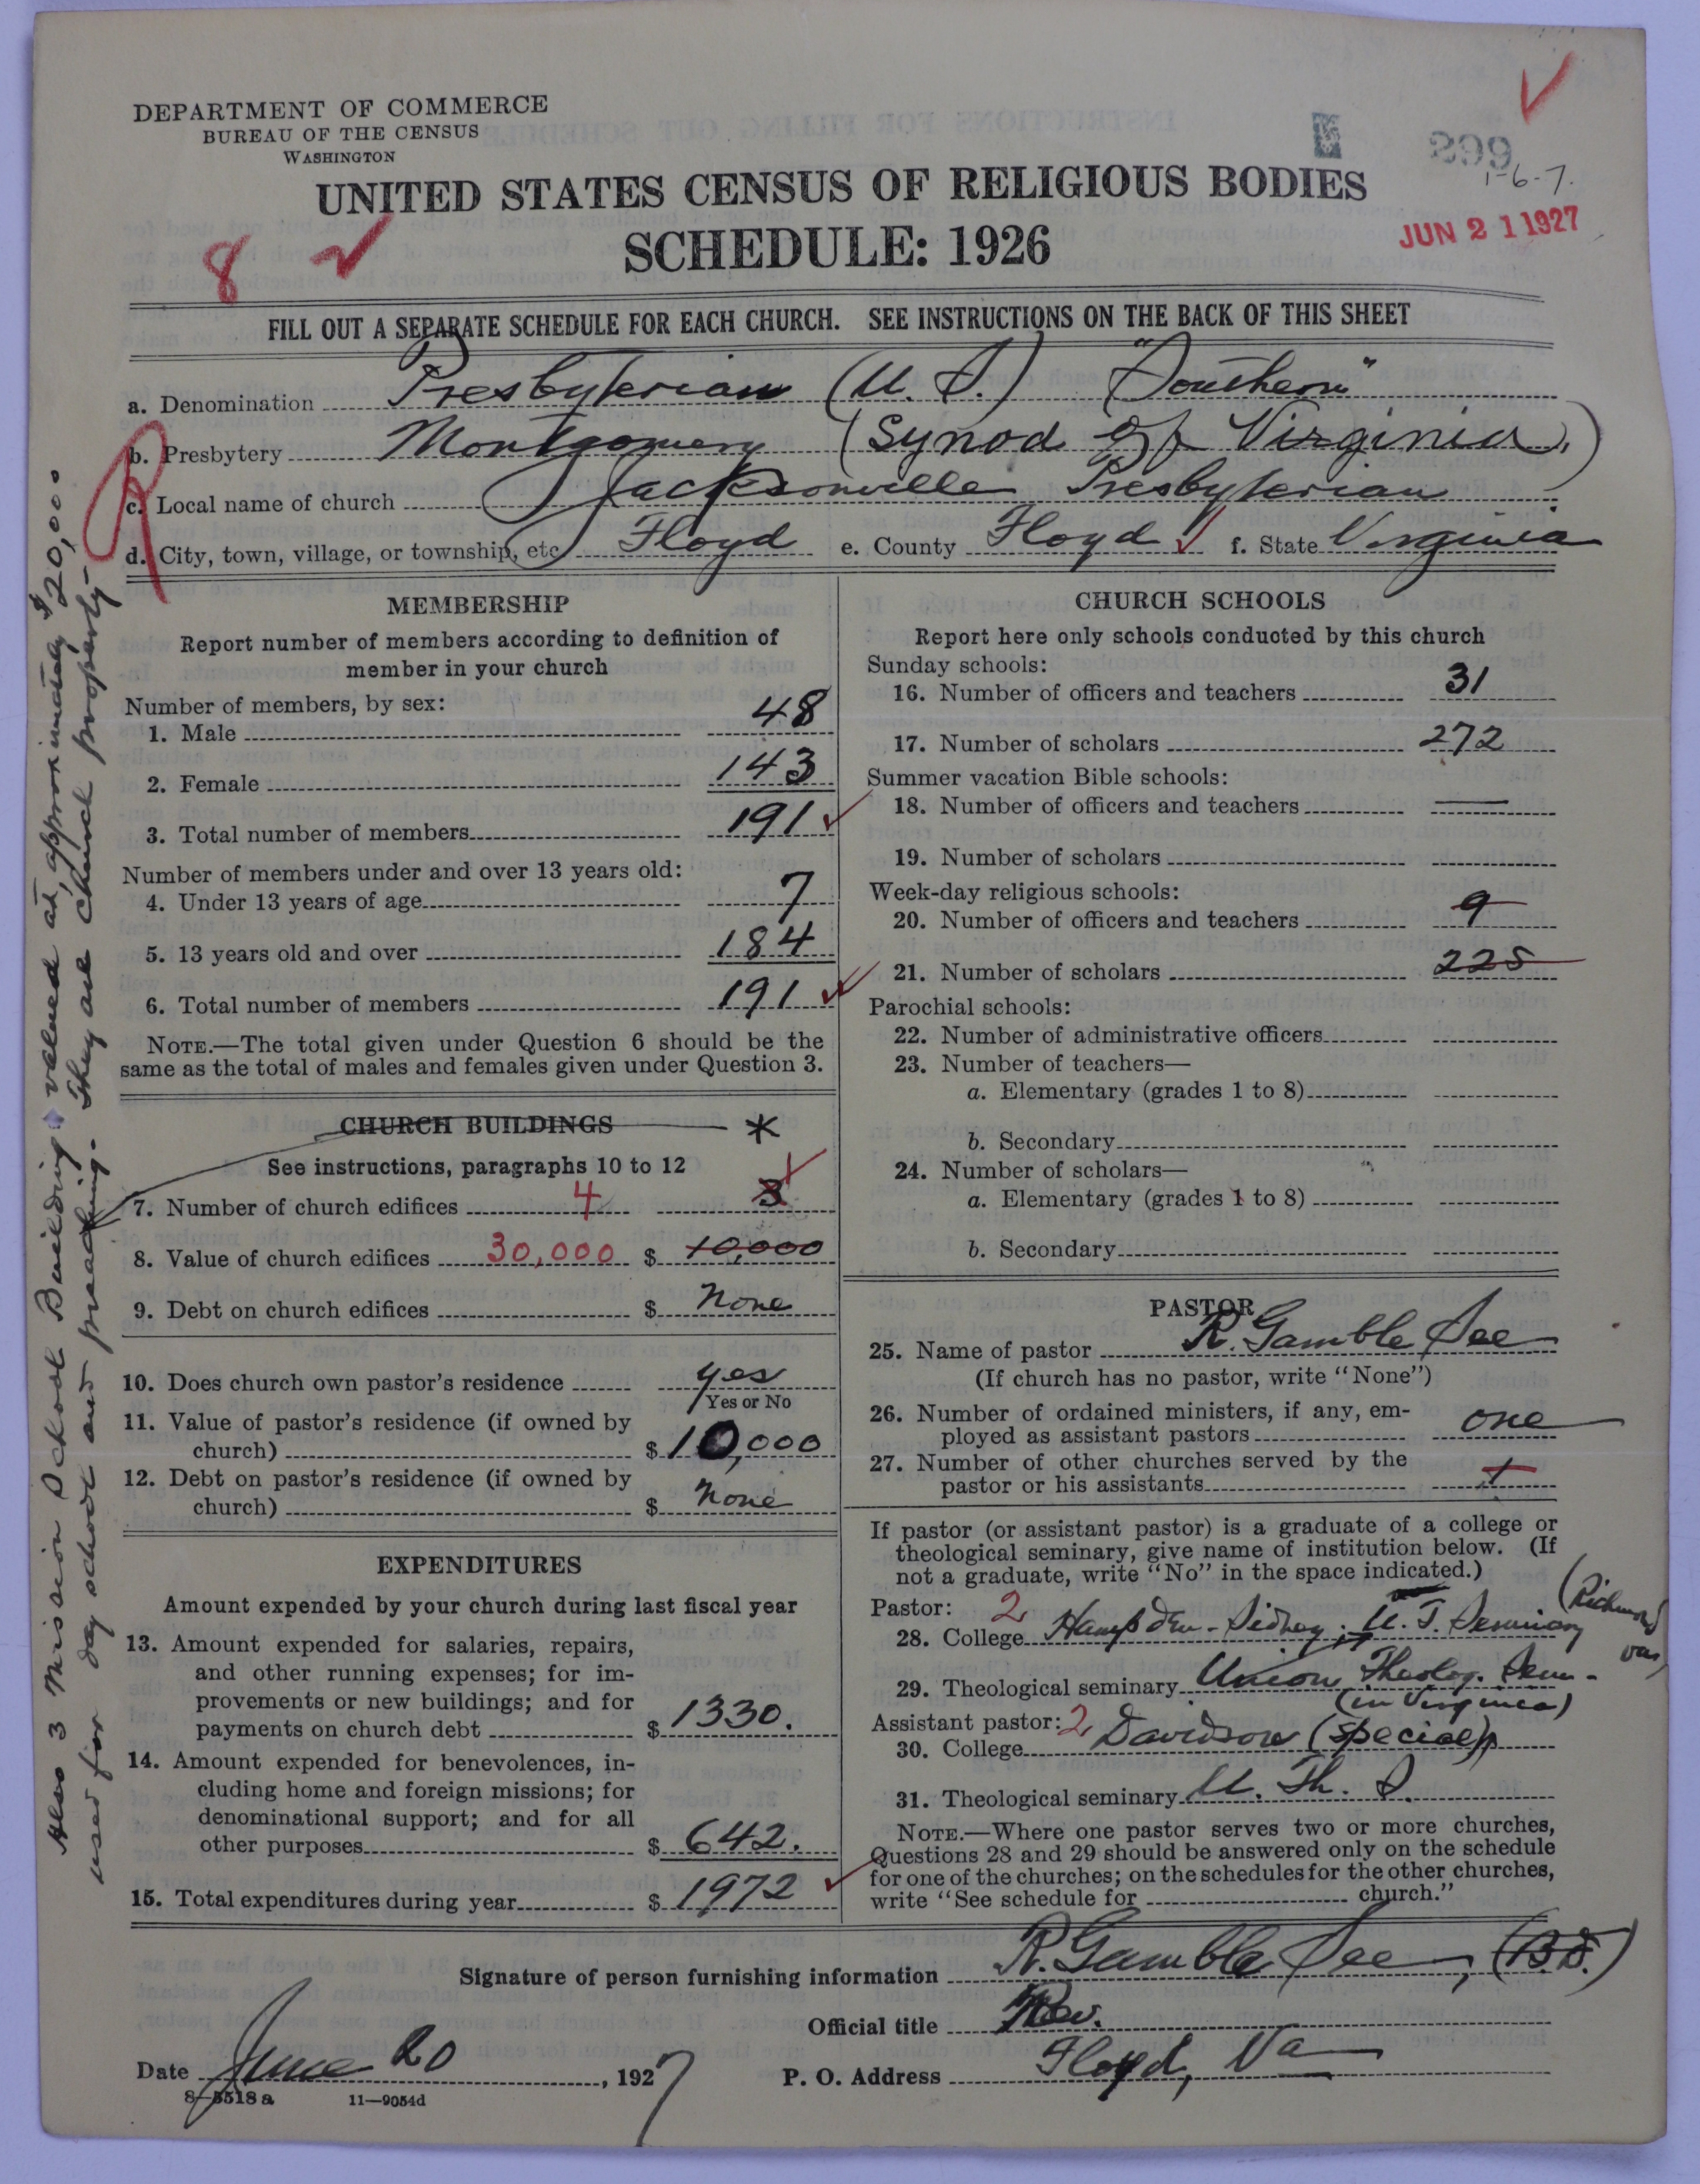 DEPARTMENT OF COMMERCE
BUREAU OF THE CENSUS
WASHINGTON
299
1-6-7.
UNITED STATES CENSUS OF RELIGIOUS BODIES
JUN 21 1927
8
SCHEDULE: 1926
FILL OUT A SEPARATE SCHEDULE FOR EACH CHURCH. SEE INSTRUCTIONS ON THE BACK OF THIS SHEET
a. Denomination Presbyterian (U.S.) "Southern"
b. Presbytery Montgomery (Synod of Virginia)
c. Local name of church Jacksonville Presbyterian
d. City, town, village, or township, etc. Floyd e. County Floyd f. State Virginia
MEMBERSHIP
Report number of members according to definition of
member in your church
Number of members, by sex:
1. Male 48
2. Female 143
3. Total number of members 191
Number of members under and over 13 years old:
4. Under 13 years of age 7
5. 13 years old and over 184
6. Total number of members 191
NOTE.—The total given under Question 6 should be the
same as the total of males and females given under Question 3.
CHURCH BUILDINGS *
See instructions, paragraphs 10 to 12
7. Number of church edifices 4 3
8. Value of church edifices 30,000 $ 10,000
9. Debt on church edifices $ None
10. Does church own pastor's residence yes
Yes or No
11. Value of pastor's residence (if owned by
church) $ 10,000
12. Debt on pastor's residence (if owned by
church) $ None
EXPENDITURES
Amount expended by your church during last fiscal year
13. Amount expended for salaries, repairs,
and other running expenses; for im-
provements or new buildings; and for
payments on church debt $ 1330.
14. Amount expended for benevolences, in-
cluding home and foreign missions; for
denominational support; and for all
other purposes $ 642.
15. Total expenditures during year $ 1972
CHURCH SCHOOLS
Report here only schools conducted by this church
Sunday schools:
16. Number of officers and teachers 31
17. Number of scholars 272
Summer vacation Bible schools:
18. Number of officers and teachers —
19. Number of scholars
Week-day religious schools:
20. Number of officers and teachers 9
21. Number of scholars 225
Parochial schools:
22. Number of administrative officers
23. Number of teachers—
a. Elementary (grades 1 to 8)
b. Secondary
24. Number of scholars—
a. Elementary (grades 1 to 8)
b. Secondary
PASTOR
25. Name of pastor R. Gamble See
(If church has no pastor, write "None")
26. Number of ordained ministers, if any, em-
ployed as assistant pastors one
27. Number of other churches served by the
pastor or his assistants
If pastor (or assistant pastor) is a graduate of a college or
theological seminary, give name of institution below. (If
not a graduate, write "No" in the space indicated.)
Pastor: 2
28. College Hampden-Sidney; U. T. Seminary (Richmond Va)
29. Theological seminary Union Theolog. Sem-
(in Virginia)
Assistant pastor: 2
30. College Davidson (special)
31. Theological seminary U. Th. S.
NOTE.—Where one pastor serves two or more churches,
Questions 28 and 29 should be answered only on the schedule
for one of the churches; on the schedules for the other churches,
write "See schedule for church."
Signature of person furnishing information R. Gamble See, (B.D.)
Official title Rev.
Date June 20, 1927 P. O. Address Floyd, Va
8-5518 a 11—9054d
Also 3 Mission School Buildings valued at approximately $20,000
used for day school and preaching. They are church property-